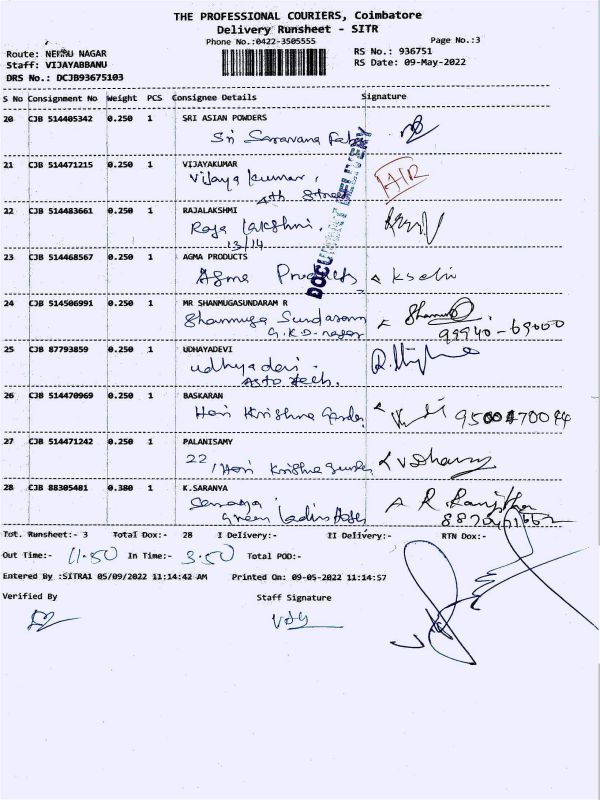 THE PROFESSIONAL COURIERS, Coimbatore
Delivery Runsheet - SITR
Phone No.:0422-3505555 Page No.:3
Route: NEHRU NAGAR RS No.: 936751
Staff: VIJAYABBANU RS Date: 09-May-2022
DRS No.: DCJB93675103
S No Consignment No Weight PCS Consignee Details Signature
20 CJB 514405342 0.250 1 SRI ASIAN POWDERS
Sri Saravana
21 CJB 514471215 0.250 1 VIJAYAKUMAR
Vijaya kumar,
4th Street
22 CJB 514483661 0.250 1 RAJALAKSHMI
Raja Lakshmi.
13/14
23 CJB 514468567 0.250 1 AGMA PRODUCTS
Agma Products
DOCUMENT DELIVERY
24 CJB 514506991 0.250 1 MR SHANMUGASUNDARAM R
Shanmuga Sundaram
G.K.D. nagar 99940-69000
25 CJB 87793859 0.250 1 UDHAYADEVI
udhyadevi.
Asto tech.
26 CJB 514470969 0.250 1 BASKARAN
Hari Krishna Garden
27 CJB 514471242 0.250 1 PALANISAMY
22, Hari Krishna
28 CJB 88305481 0.380 1 K.SARANYA
Saranya.
Green Ladies Hostel
Tot. Runsheet:- 3 Total Dox:- 28 I Delivery:- II Delivery:- RTN Dox:-
Out Time:- 11.50 In Time:- 3.50 Total POD:-
Entered By :SITRA1 05/09/2022 11:14:42 AM Printed On: 09-05-2022 11:14:57
Verified By Staff Signature